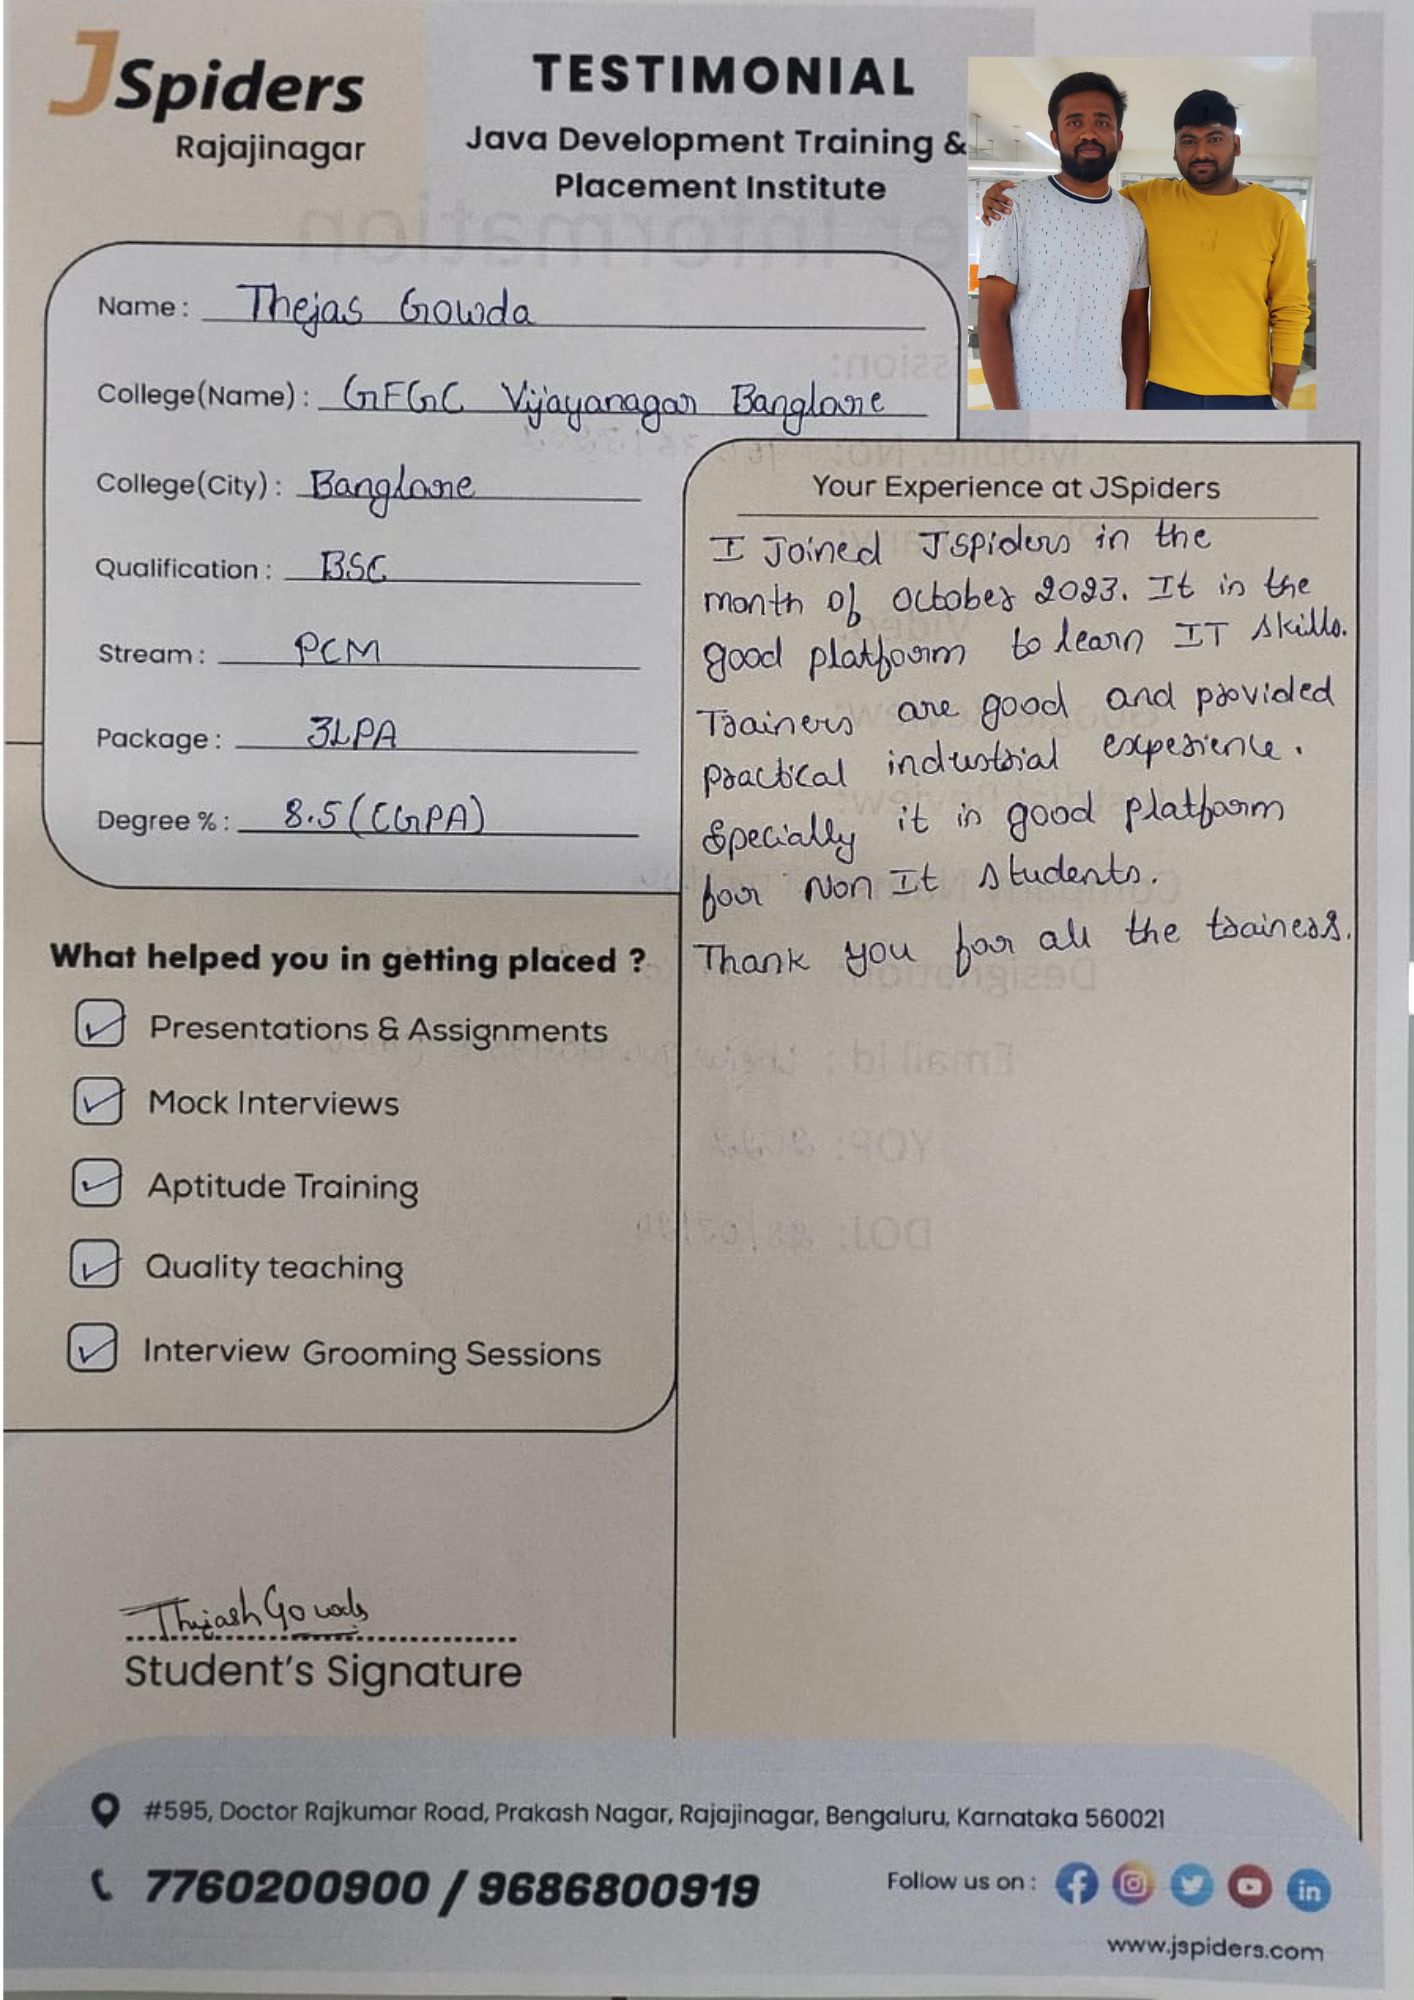 JSpiders
Rajajinagar
TESTIMONIAL
Java Development Training &
Placement Institute
Name : Thejas Gowda
College(Name) : GFGC Vijayanagar Banglore
College(City) : Banglore
Qualification : BSC
Stream : PCM
Package : 3LPA
Degree % : 8.5 (CGPA)
Your Experience at JSpiders
I Joined Jspiders in the
month of october 2023. It is the
good platform to learn IT skills.
Trainers are good and provided
practical industrial experience.
Specially it is good platform
for Non It students.
Thank you for all the trainers.
What helped you in getting placed ?
Presentations & Assignments
Mock Interviews
Aptitude Training
Quality teaching
Interview Grooming Sessions
Student's Signature
#595, Doctor Rajkumar Road, Prakash Nagar, Rajajinagar, Bengaluru, Karnataka 560021
7760200900 / 9686800919
Follow us on :
www.jspiders.com